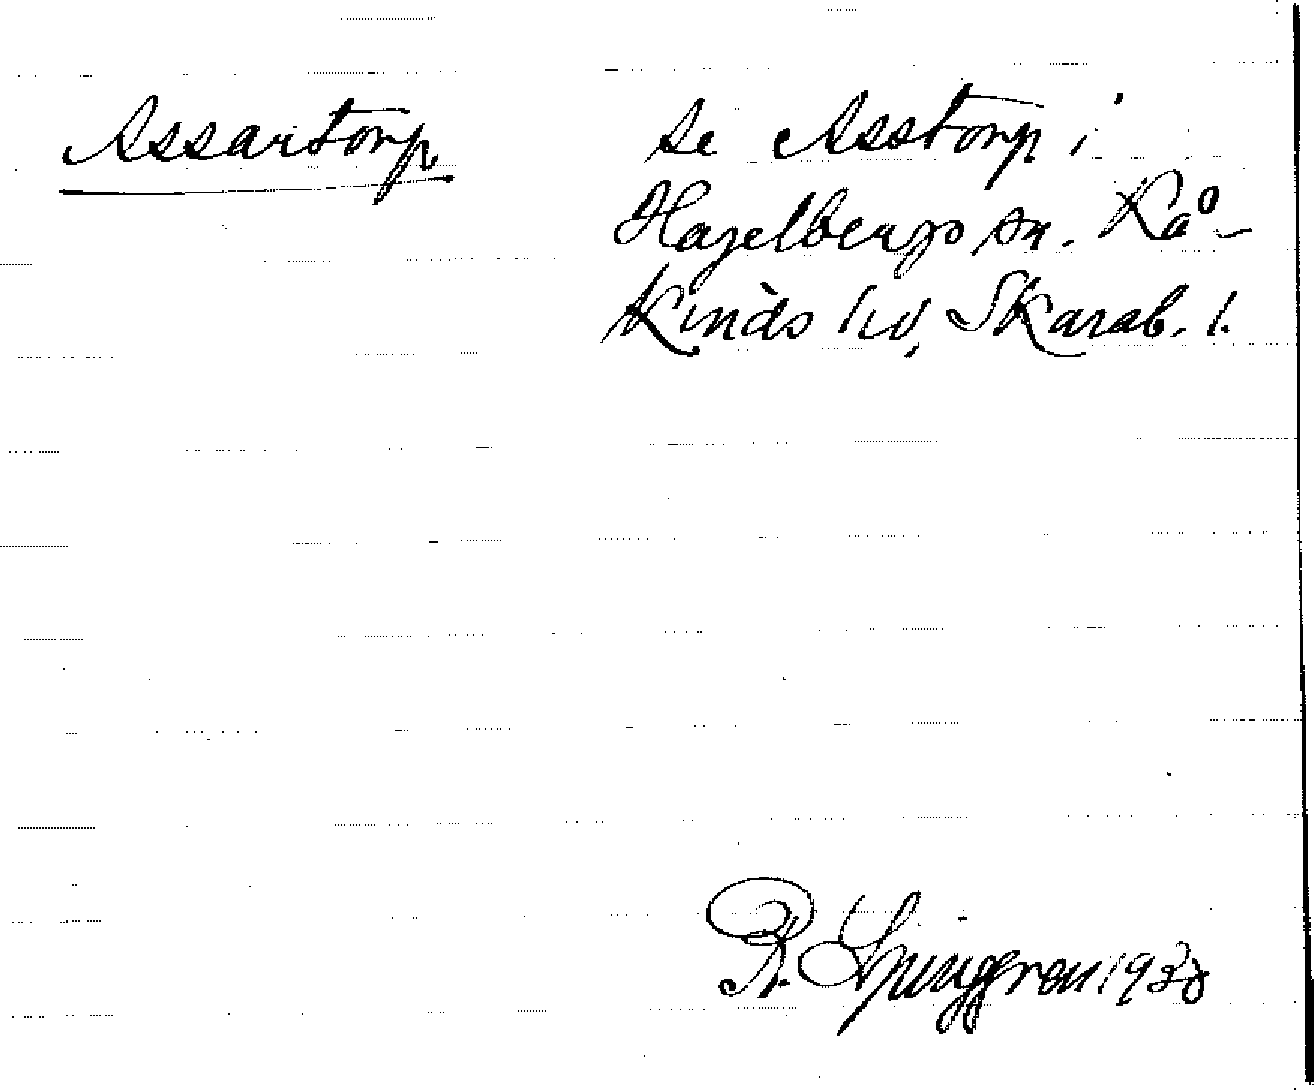 Assartorp
se Asstorp i
Hagelbergs sn. Kå-
kinds hd, Skarab. l.
R. Ljunggren 1930